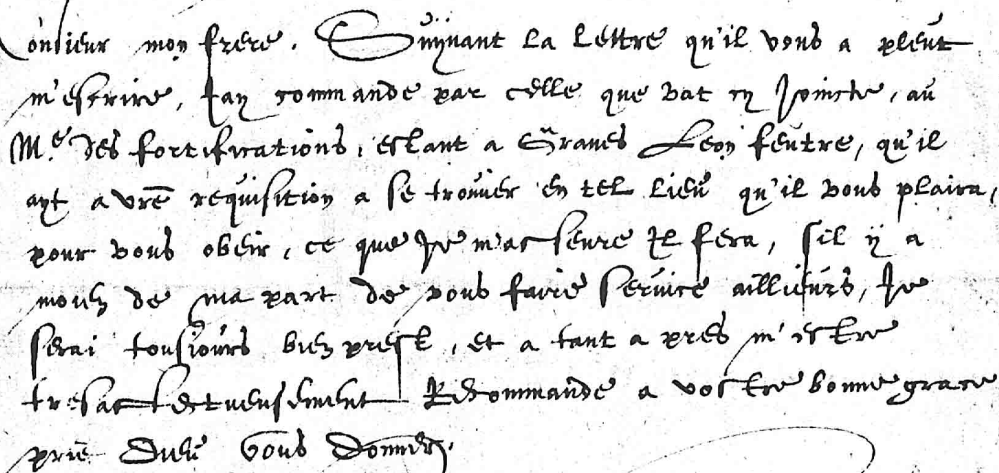 onsieur mon frere. Suijvant la lettre qu'il vous a pleut
m'escrire, Jay commande par celle que vat cy Joincte, au
M.e des fortifications, estant a Graves Leon feutre, qu'il
ayt a vre requisition a se trouver en tel lieu qu'il vous plaira,
pour vous obeir, ce que Je m'asseure Jl fera, s'il ÿ a
moien de ma part de vous faire service aillieurs, Je
serai tousiours bien prest, et a tant apres m'estre
tresaffectueusement Recommande a vostre bonne grace
prie Dieu vous donner.